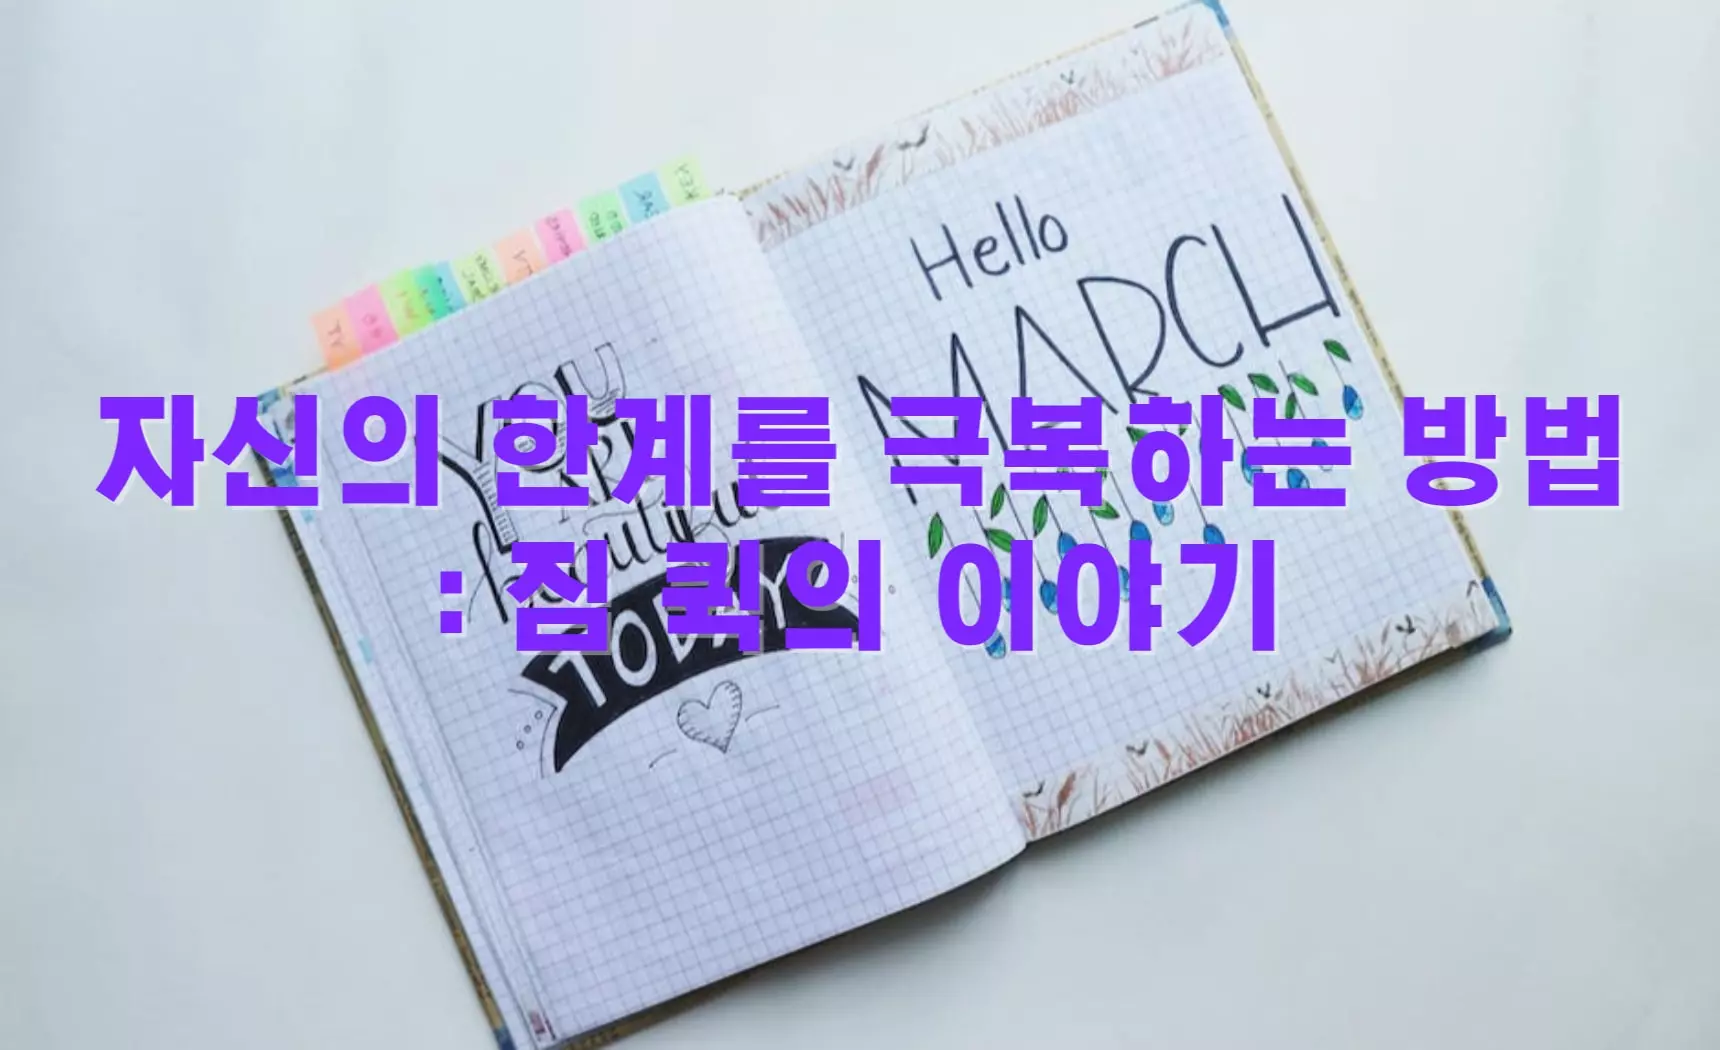 자신의 한계를 극복하는 방법
: 짐 퀵의 이야기
Hello
MARCH
YOU
ARE
beautiful
TODAY